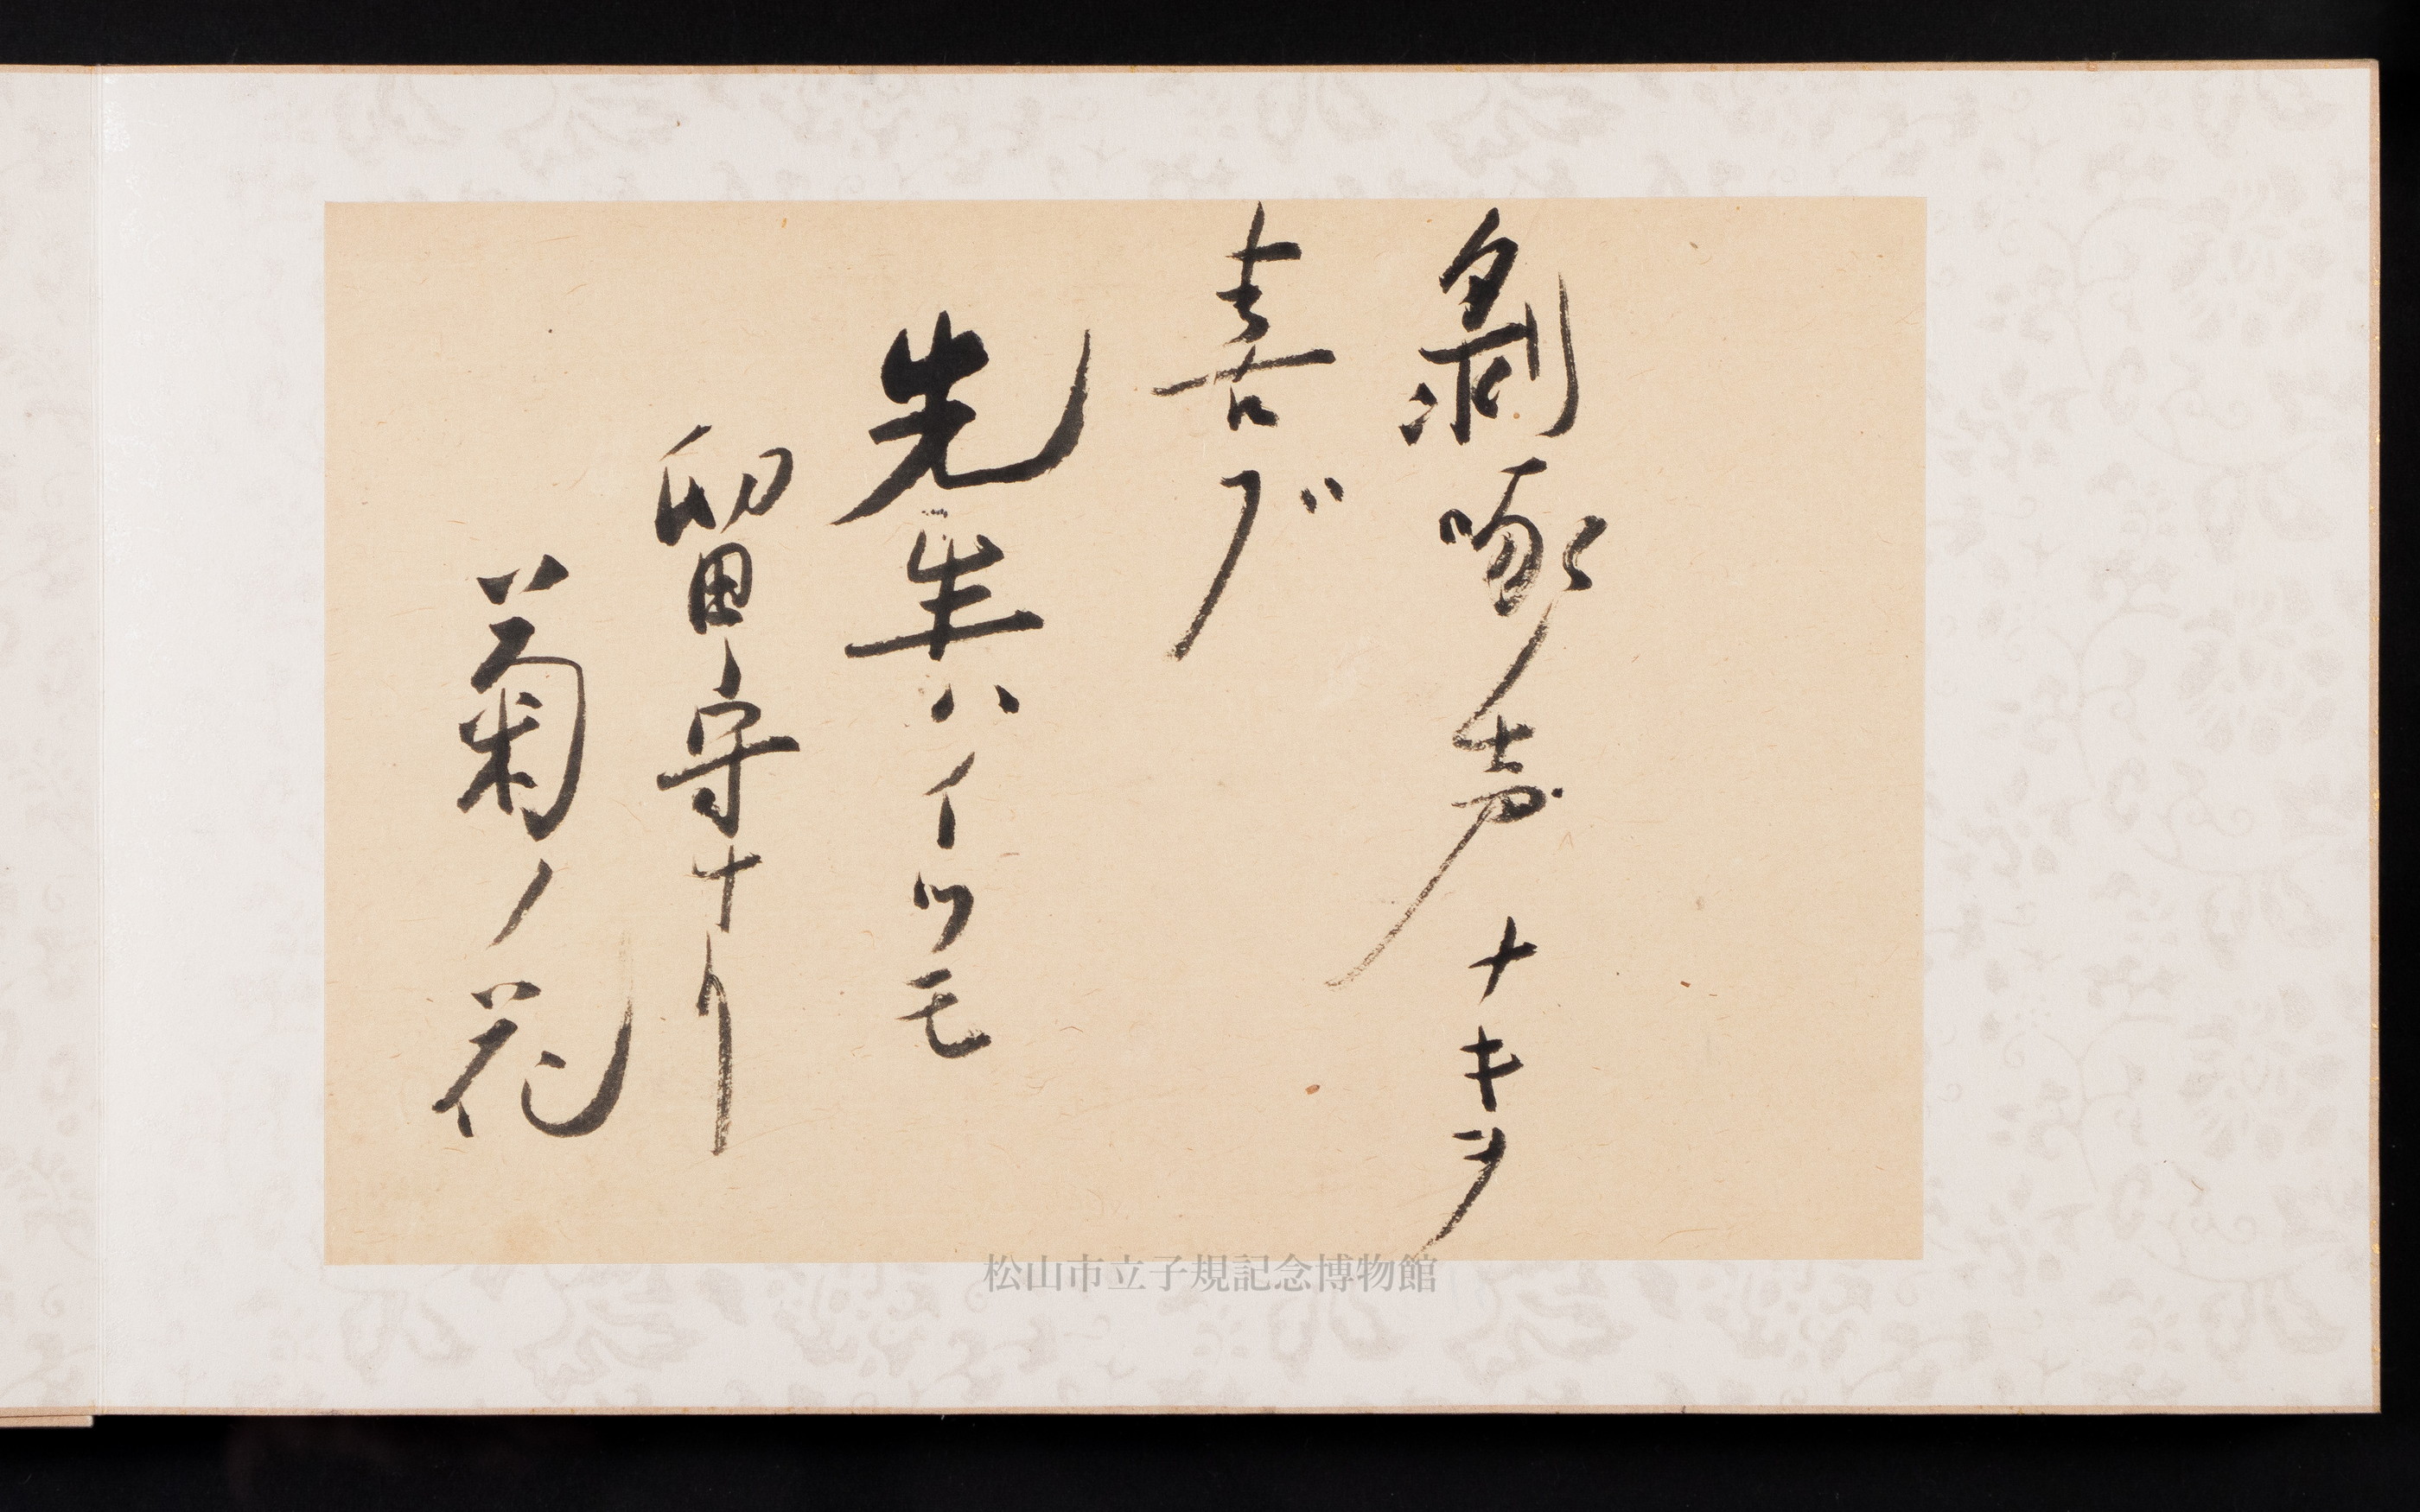 剥啄声ナキヲ
喜ブ
先生ハイツモ
留守ナリ
菊ノ花
松山市立子規記念博物館